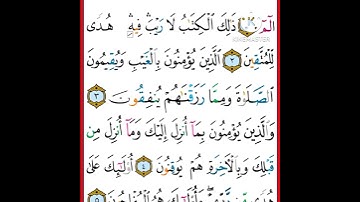 الٓمٓ ١ ذَٰلِكَ ٱلْكِتَٰبُ لَا رَيْبَ ۛ فِيهِ ۛ هُدًى
لِّلْمُتَّقِينَ ٢ ٱلَّذِينَ يُؤْمِنُونَ بِٱلْغَيْبِ وَيُقِيمُونَ
ٱلصَّلَوٰةَ وَمِمَّا رَزَقْنَٰهُمْ يُنفِقُونَ ٣
وَٱلَّذِينَ يُؤْمِنُونَ بِمَآ أُنزِلَ إِلَيْكَ وَمَآ أُنزِلَ مِن
قَبْلِكَ وَبِٱلْءَاخِرَةِ هُمْ يُوقِنُونَ ٤ أُو۟لَٰٓئِكَ عَلَىٰ
هُدًى مِّن رَّبِّهِمْ ۖ وَأُو۟لَٰٓئِكَ هُمُ ٱلْمُفْلِحُونَ ٥